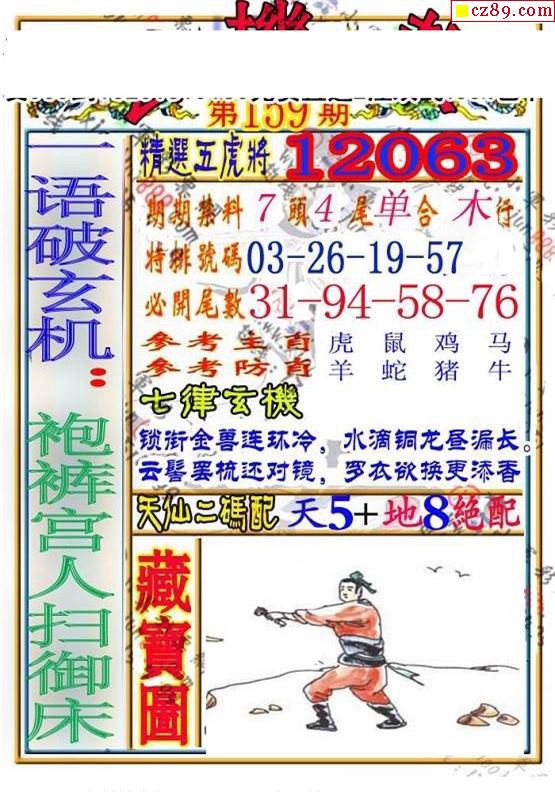 cz89.com
第159期
精選五虎將 12063
期期禁料 7頭4尾单合木行
特排號碼 03-26-19-57
必開尾數 31-94-58-76
參考主肖 虎鼠鸡马
參考防肖 羊蛇猪牛
七律玄機
锁衔金兽连环冷，水滴铜龙昼漏长。
云髻罢梳还对镜，罗衣欲换更添香
天仙二碼配 天5+地8絕配
一语破玄机：
袍裤宫人扫御床
藏寶圖